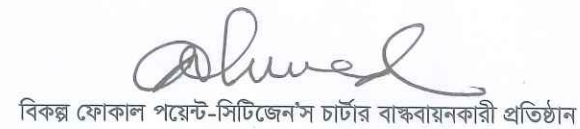 বিকল্প ফোকাল পয়েন্ট-সিটিজেন'স চার্টার বাস্তবায়নকারী প্রতিষ্ঠান